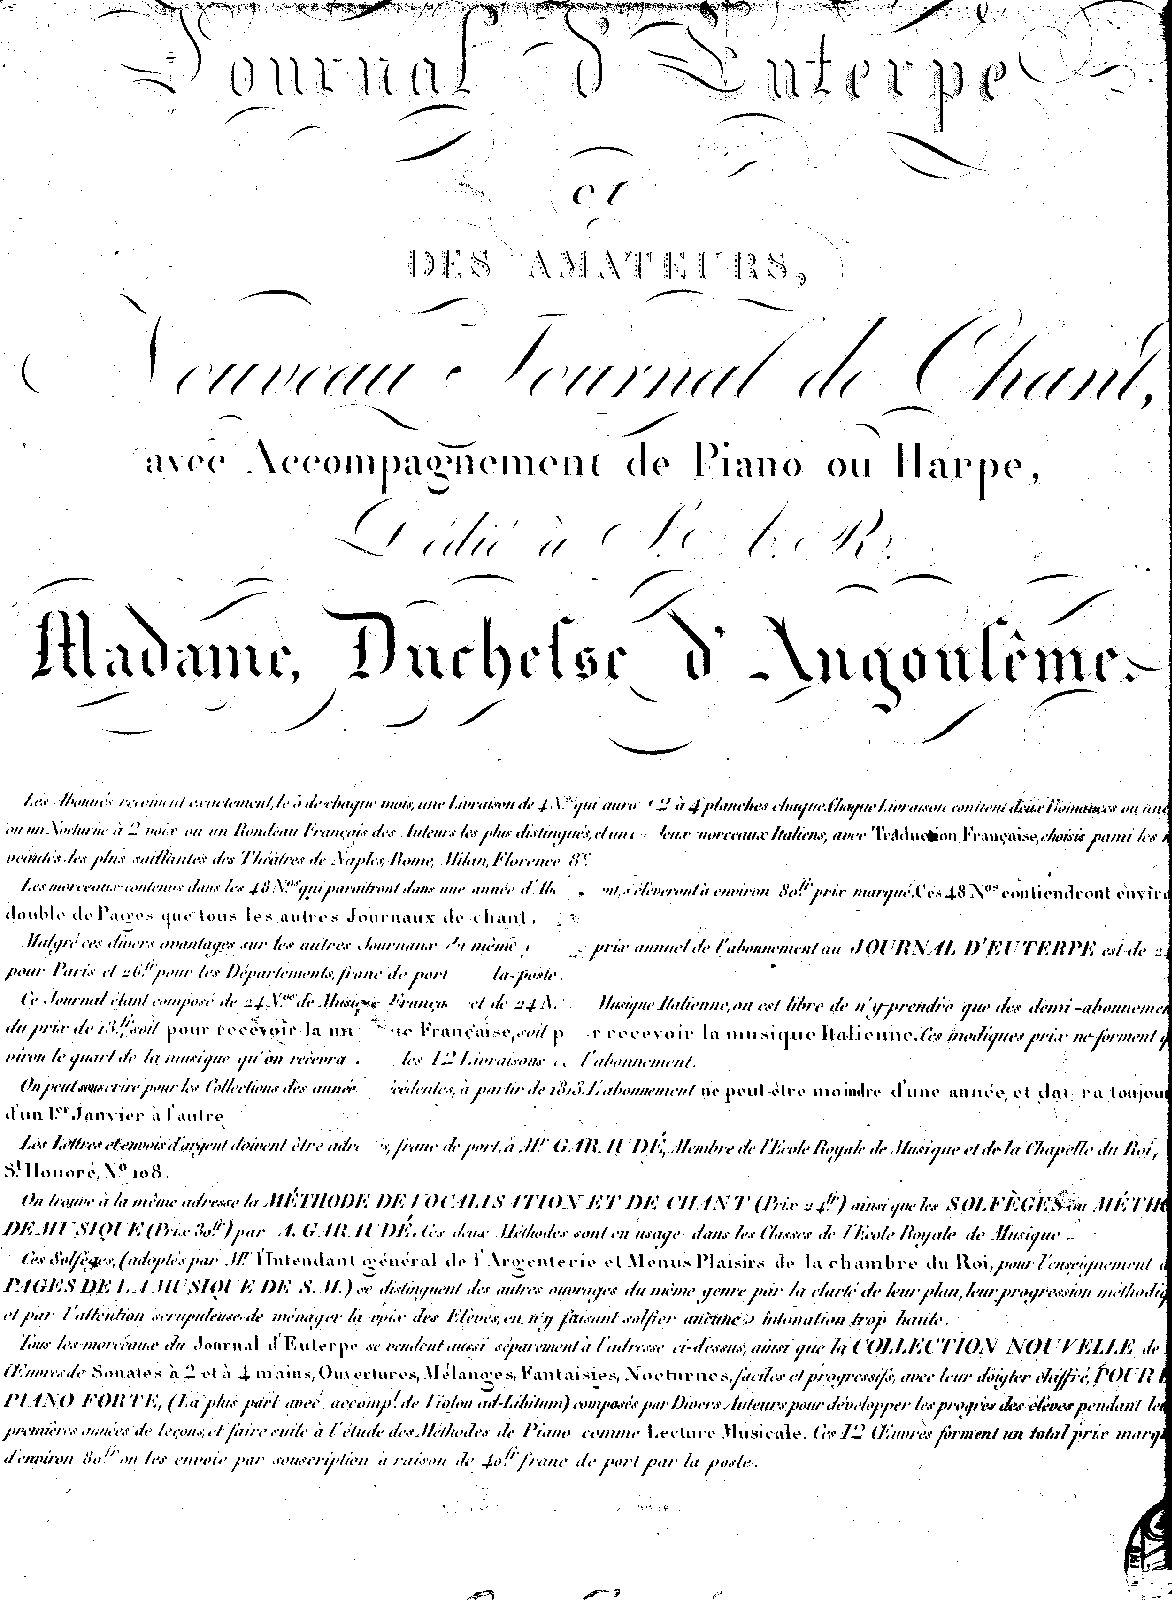 Journal d'Euterpe
et
DES AMATEURS,
Nouveau Journal de Chant,
avec Accompagnement de Piano ou Harpe,
Dédié à S. A. R.
Madame, Duchesse d'Angoulême.
Les Abonnés reçoivent exactement, le 5 de chaque mois, une Livraison de 4 Nos qui aura 2 à 4 planches chaque. Chaque Livraison contient deux Romances ou une
ou un Nocturne à 2 voix ou un Rondeau Français des Auteurs les plus distingués, et un deux morceaux Italiens, avec Traduction Française, choisis parmi les
veautés les plus saillantes des Théâtres de Naples, Rome, Milan, Florence &c.
Les morceaux contenus dans les 48 Nos qui paraîtront dans une année d'Abo ont, s'élèveront à environ 80ff prix marqué. Ces 48 Nos contiendront enviro
double de Pages que tous les autres Journaux de chant.
Malgré ces divers avantages sur les autres Journaux du même prix annuel de l'abonnement au JOURNAL D'EUTERPE est de 24
pour Paris et 26ff pour les Départements, franc de port la poste.
Ce Journal étant composé de 24 Nos de Musique França et de 24 N. Musique Italienne, on est libre de n'y prendre que des demi-abonnemen
du prix de 13ff soit pour recevoir la mu que Française, soit p r recevoir la musique Italienne. Ces modiques prix ne forment q
viron le quart de la musique qu'on recevra les 12 Livraisons de l'abonnement.
On peut souscrire pour les Collections des année cédentes, à partir de 1813. L'abonnement ne peut être moindre d'une année, et dat ra toujour
d'un 1er Janvier à l'autre
Les Lettres et envois d'argent doivent être adre s, franc de port, à Mr GARAUDÉ, Membre de l'Ecole Royale de Musique et de la Chapelle du Roi,
St Honoré, No 108.
On trouve à la même adresse la MÉTHODE DE VOCALISATION ET DE CHANT (Prix 24ff) ainsi que les SOLFÈGES ou MÉTHO
DE MUSIQUE (Prix 30ff) par A. GARAUDÉ. Ces deux Méthodes sont en usage dans les Classes de l'Ecole Royale de Musique
Ces Solfèges, (adoptés par Mr l'Intendant général de l'Argenterie et Menus Plaisirs de la chambre du Roi, pour l'enseignement d
PAGES DE LA MUSIQUE DE S.M.) se distinguent des autres ouvrages du même genre par la clarté de leur plan, leur progression méthodiq
et par l'attention scrupuleuse de ménager la voix des Elèves, en n'y faisant solfier aucune intonation trop haute.
Tous les morceaux du Journal d'Euterpe se vendent aussi séparément à l'adresse ci-dessus, ainsi que la COLLECTION NOUVELLE de
Œuvres de Sonates à 2 et à 4 mains, Ouvertures, Mélanges, Fantaisies, Nocturnes, faciles et progressifs, avec leur doigter chiffré, POUR L
PIANO FORTE, (La plus part avec accompt de Violon ad-Libitum) composés par Divers Auteurs pour développer les progrès des élèves pendant les
premières années de leçons, et faire suite à l'étude des Méthodes de Piano comme Lecture Musicale. Ces 12 Œuvres forment un total prix marqu
d'environ 80ff on les envoie par souscription à raison de 40ff franc de port par la poste.